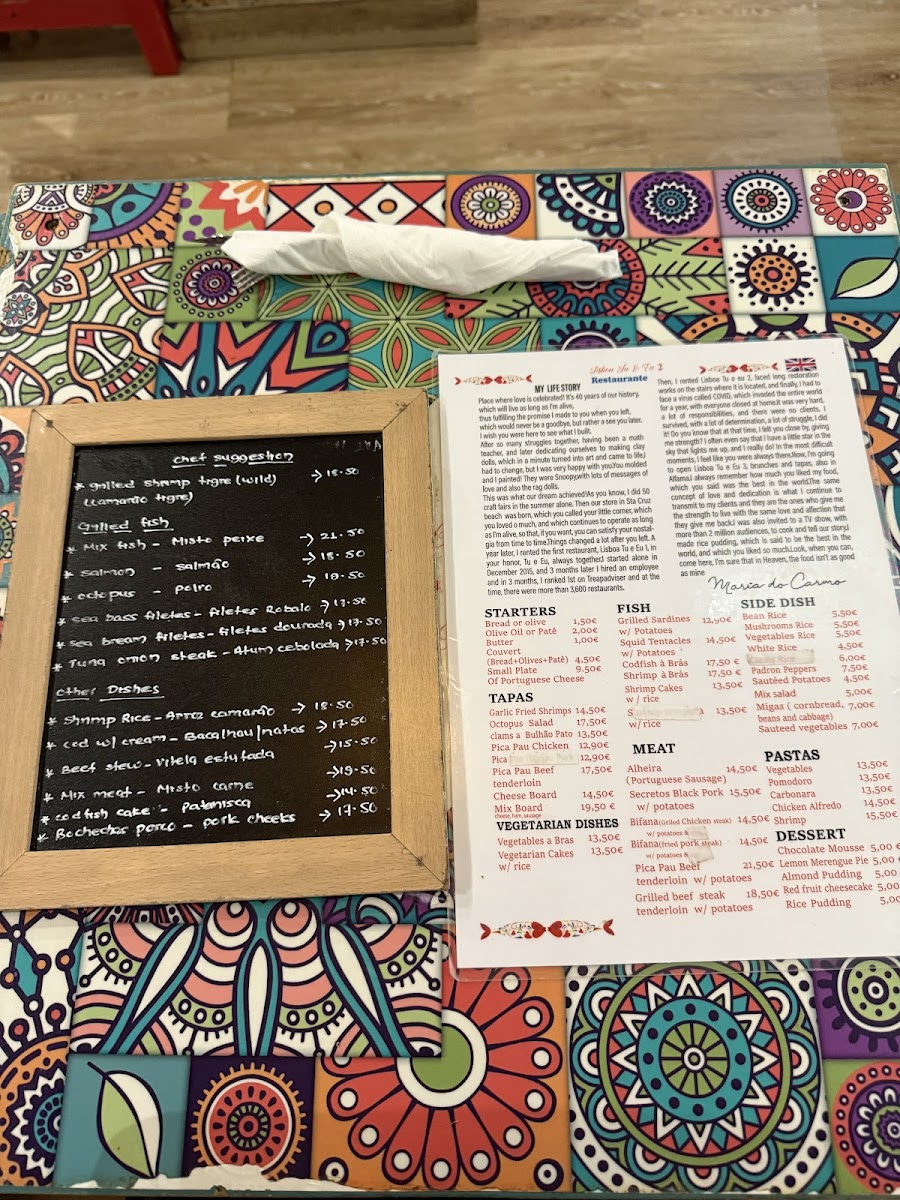 Chef suggestion
* grilled shrimp tigre (wild) → 18.50
(camarão tigre)
Grilled fish
* Mix fish - Misto peixe → 21.50
* salmon - salmão → 18.50
* octopus - polvo → 19.50
* sea bass filetes - filetes Robalo → 17.50
* Sea bream filetes - filetes dourada → 17.50
* Tuna onion steak - Atum cebolada → 17.50
other Dishes
* Shrimp Rice - Arroz camarão → 18.50
* cod w/ cream - Bacalhau/natas → 17.50
* Beef stew - vitela estufada → 15.50
* Mix meat - Misto carne → 19.50
* codfish cake - Patanisca → 14.50
* Bochechas porco - pork cheeks → 17.50
Lisboa Tu & Eu 2
Restaurante
MY LIFE STORY
Place where love is celebrated! It's 40 years of our history,
which will live as long as I'm alive,
thus fulfilling the promise I made to you when you left,
which would never be a goodbye, but rather a see you later.
I wish you were here to see what I built.
After so many struggles together, having been a math
teacher, and later dedicating ourselves to making clay
dolls, which in a minute turned into art and came to life,I
had to change, but I was very happy with you!You molded
and I painted! They were Snoopy,with lots of messages of
love and also the rag dolls.
This was what our dream achieved!As you know, I did 50
craft fairs in the summer alone. Then our store in Sta Cruz
beach was born, which you called your little corner, which
you loved o much, and which continues to operate as long
as I'm alive, so that, if you want, you can satisfy your nostal-
gia from time to time.Things changed a lot after you left. A
year later, I rented the first restaurant, Lisboa Tu e Eu 1, in
your honor, Tu e Eu, always together.I started alone in
December 2015, and 3 months later I hired an employee
and in 3 months, I ranked 1st on Treapadviser and at the
time, there were more than 3,600 restaurants.
Then, I rented Lisboa Tu e eu 2, faced long restoration
works on the stairs where it is located, and finally, I had to
face a virus called COVID, which invaded the entire world
for a year, with everyone closed at home.It was very hard,
a lot of responsibilities, and there were no clients, I
survived, with a lot of determination, a lot of struggle, I did
it! Do you know that at that time, I felt you close by, giving
me strength? I often even say that I have a little star in the
sky that lights me up, and I really do! In the most difficult
moments, I feel like you were always there.Now, I'm going
to open Lisboa Tu e Eu 3, brunches and tapas, also in
Alfama.I always remember how much you liked my food,
which you said was the best in the world.The same
concept of love and dedication is what I continue to
transmit to my clients and they are the ones who give me
the strength to live with the same love and affection that
they give me back.I was also invited to a TV show, with
more than 2 million audiences, to cook and tell our story.I
made rice pudding, which is said to be the best in the
world, and which you liked so much.Look, when you can,
come here, I'm sure that in Heaven, the food isn't as good
as mine
Maria do Carmo
STARTERS
Bread or olive 1,50€
Olive Oil or Patê 2,00€
Butter 1,00€
Couvert
(Bread+Olives+Patê) 4,50€
Small Plate 9.50€
Of Portuguese Cheese
TAPAS
Garlic Fried Shrimps 14,50€
Octopus Salad 17,50€
clams a Bulhão Pato 13,50€
Pica Pau Chicken 12,90€
Pica 12,90€
Pica Pau Beef 17,50€
tenderloin
Cheese Board 14,50€
Mix Board 19,50 €
cheese, ham, sausage
VEGETARIAN DISHES
Vegetables a Bras 13,50€
Vegetarian Cakes 13,50€
w/ rice
FISH
Grilled Sardines 12,90€
w/ Potatoes
Squid Tentacles 14,50€
w/ Potatoes
Codfish à Brás 17,50 €
Shrimp à Brás 17.50 €
Shrimp Cakes 13,50€
w/ rice
13,50€
w/rice
MEAT
Alheira 14,50€
(Portuguese Sausage)
Secretos Black Pork 15,50€
w/ potatoes
Bifana(Grilled Chicken steak) 14,50€
w/ potatoes &
Bifana(fried pork steak) 14,50€
w/ potatoes &
Pica Pau Beef 21,50€
tenderloin w/ potatoes
Grilled beef steak 18,50€
tenderloin w/ potatoes
SIDE DISH
Bean Rice 5,50€
Mushrooms Rice 5,50€
Vegetables Rice 5,50€
White Rice 4,50€
6,00€
Padron Peppers 7,50€
Sautéed Potatoes 4,50€
Mix salad 5,00€
Migas ( cornbread, 7,00€
beans and cabbage)
Sauteed vegetables 7,00€
PASTAS
Vegetables 13,50€
Pomodoro 13,50€
Carbonara 13,50€
Chicken Alfredo 14,50€
Shrimp 15,50€
DESSERT
Chocolate Mousse 5,00 €
Lemon Merengue Pie 5,00
Almond Pudding 5,00
Red fruit cheesecake 5,00
Rice Pudding 5,00